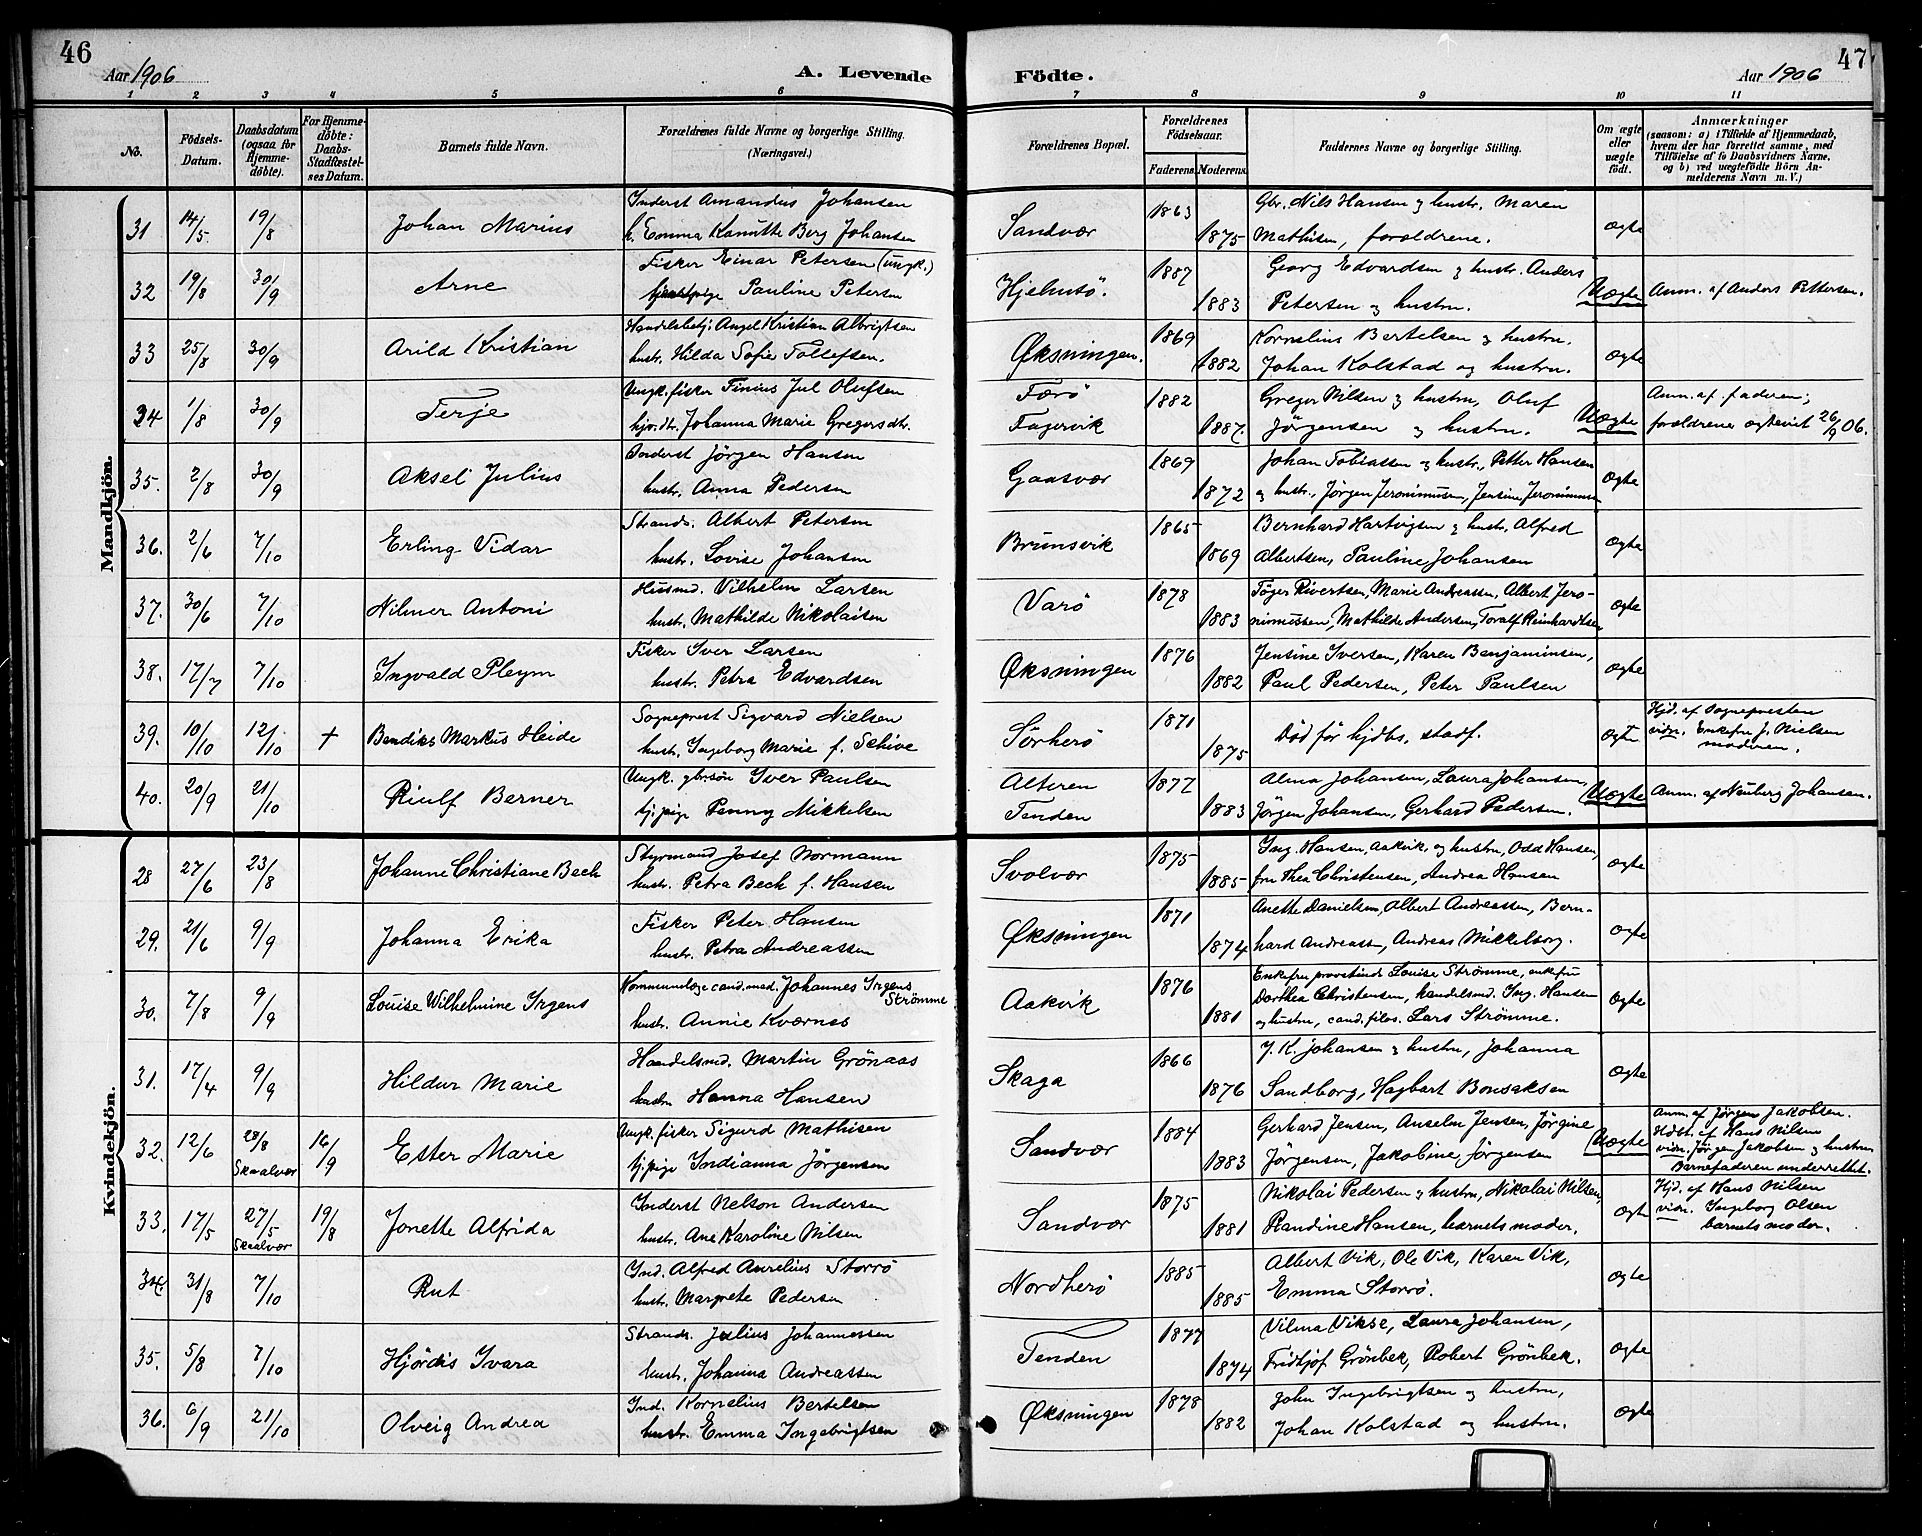 46
Aar 1906
A. Levende Födte.
Aar 1906
47
1 2 3 4 5 6 7 8 9 10 11
No.
Födsels-Datum.
Daabsdatum (ogsaa for Hjemme-döbte).
For Hjemme-döbte: Daabs-Stadfæstel-ses Datum.
Barnets fulde Navn.
Forældrenes fulde Navne og borgerlige Stilling. (Næringsvei.)
Forældrenes Bopæl.
Forældrenes Födselsaar.
Faderens. Moderens.
Faddernes Navne og borgerlige Stilling.
Om ægte eller uægte födt.
Anmærkninger
(saasom: a) i Tilfælde af Hjemmedaab, hvem der har forrettet samme, med Tilföielse af to Daabsvidners Navne, og b) ved uægtefödte Börn An-melderens Navn m. V.)
Mandkjön.
31 14/5 19/8 Johan Marius
Inderst Amandus Johansen
h. Emma Kanutte Berg Johansen
Sandvær 1863 1875
Gbr. Nils Hansen og hustr. Maren
Mathisen, forældrene.
ægte
32 19/8 30/9 Arne
Fisker Einar Petersen (ungk.)
tjenestpige Pauline Petersen
Hjelmsö. 1887 1883
Georg Edvardsen og hustr. Anders
Petersen og hustru.
Uægte
Anm. af Anders Pettersen.
33 25/8 30/9 Arild Kristian
Handelsbetj. Angel Kristian Albrigtsen
hustr. Hilda Sofie Tollefsen.
Øksningen. 1869 1882
Kornelius Bertelsen og hustru.
Johan Kolstad og hustru.
ægte
34 1/8 30/9 Terje
Ungk. fisker Finius Jul Olufsen
hjv. dtr. Johanna Marie Gregersdtr.
Færö
Fagervik
1882 1887.
Greger Nilsen og hustru, Oluf
Jörgensen og hustru.
Uægte
Anm. af faderen;
forældrene ægteviet 26/9 06.
35. 2/8 30/9 Aksel Julius
Inderst Jörgen Hansen
hustr. Anna Pedersen
Gaasvær 1869 1872
Johan Tobiassen og hustr., Petter Hansen
og hustr., Jörgen Jeronimusen, Jensine Jeronimusen
ægte
36. 2/6 7/10 Erling Vidar
Strands. Albert Petersen
hustr. Lovise Johansen
Brunsvik 1865 1869
Bernhard Hartvigsen og hustr. Alfred
Albertsen, Pauline Johansen
ægte
37. 30/6 7/10 Hilmer Antoni
Husmd. Vilhelm Larsen
hustr. Mathilde Nikolaisen
Varö 1878 1883
Töger Rivertsen, Marie Andreassen, Albert Jero-
nimussen, Mathilde Andersen, Toralf Reinhardtsen
ægte
38. 17/7 7/10 Ingvald Pleym
Fisker Iver Larsen
hustr. Petra Edvardsen
Øksningen 1876 1882
Jensine Iversen, Karen Benjaminsen,
Paul Pedersen, Peter Paulsen
ægte
39. 10/10 12/10 † Bendiks Markus Heide
Sogneprest Sigvard Nielsen
hustr. Ingeborg Marie f. Schive
Sörherö 1871 1875
Död för hjdbs. stadf.
ægte
Hjd. af Sognepresten
vidn. Enkefru J. Nielsen
moderen.
40. 20/9 21/10 Riulf Berner
Ungk. gbr.sön Iver Paulsen
tj.pige Penny Mikkelsen
Alteren
Tenden
1877 1883
Alma Johansen, Laura Johansen,
Jörgen Johansen, Gerhard Pedersen.
Uægte
Anm. af Neuberg Johansen.
Kvindekjön.
28 27/6 23/8 Johanne Christiane Bech
Styrmand Josef Normann
hustr. Petra Bech f. Hansen
Svolvær 1875 1885
Ing. Hansen, Aakvik, og hustru, Odd Hansen,
fru Thea Christensen, Andrea Hansen
ægte
29. 21/6 9/9 Johanna Erika
Fisker Peter Hansen
hustr. Petra Andreassen
Øksningen 1871 1874
Anette Danielsen, Albert Andreassen, Bern-
hard Andreassen, Andreas Mikkelborg.
ægte
30. 7/8 9/9 Louise Wilhelmine Irgens
Kommunelæge cand. med. Johannes Irgens Strömme
hustr. Annie Kværnes
Aakvik 1876 1881
Enkefru provstinde Louise Strömme, enkefru
Dorthea Christensen, handelsmd. Ing. Hansen
og hustru, cand. filos. Lars Strömme.
ægte
31. 17/4 9/9 Hildur Marie
Handelsmd. Martin Grönaas
hustru Hanna Hansen
Skaga 1866 1876
J. K. Johansen og hustru, Johanna
Sandborg, Hagbart Bonsaksen
ægte
32. 12/6 28/8 Skaalvær 16/9 Ester Marie
Ungk. fisker Sigurd Mathisen
tj.pige Indianna Jörgensen
Sandvær 1884 1883
Gerhard Jensen, Anselm Jensen, Jörgine
Jörgensen, Jakobine Jörgensen
Uægte
Anm. af Jörgen Jakobsen.
Hdbt. af Hans Nilsen
vidn. Jörgen Jakobsen og hustru
Barnefaderen underrettet.
33. 17/5 27/5 Skaalvær 19/8 Jonette Alfrida
Inderst Nelson Andersen
hustr. Ane Karoline Nilsen
Sandvær 1875 1881
Nikolai Pedersen og hustru, Nikolai Nilsen,
Randine Hansen, barnets moder.
ægte
Hjd. af Hans Nilsen
vidn. Ingeborg Olsen
barnets moder.
34. 31/8 7/10 Rut
Ind. Alfred Aurelius Storrö
hustr. Margrete Pedersen
Nordherö 1885 1885
Albert Vik, Ole Vik, Karen Vik,
Emma Storrö.
ægte
35. 5/8 7/10 Hjördis Ivara
Strands. Julius Johannessen
hustr. Johanna Andreassen
Tenden 1877 1874
Vilma Vikse, Laura Johansen,
Fridtjof Grönbek, Robert Grönbek.
ægte
36. 6/9 21/10 Olveig Andrea
Ind. Kornelius Bertelsen
hustr. Emma Ingebrigtsen
Øksningen 1878 1882
John Ingebrigtsen og hustru,
Johan Kolstad og hustru.
ægte